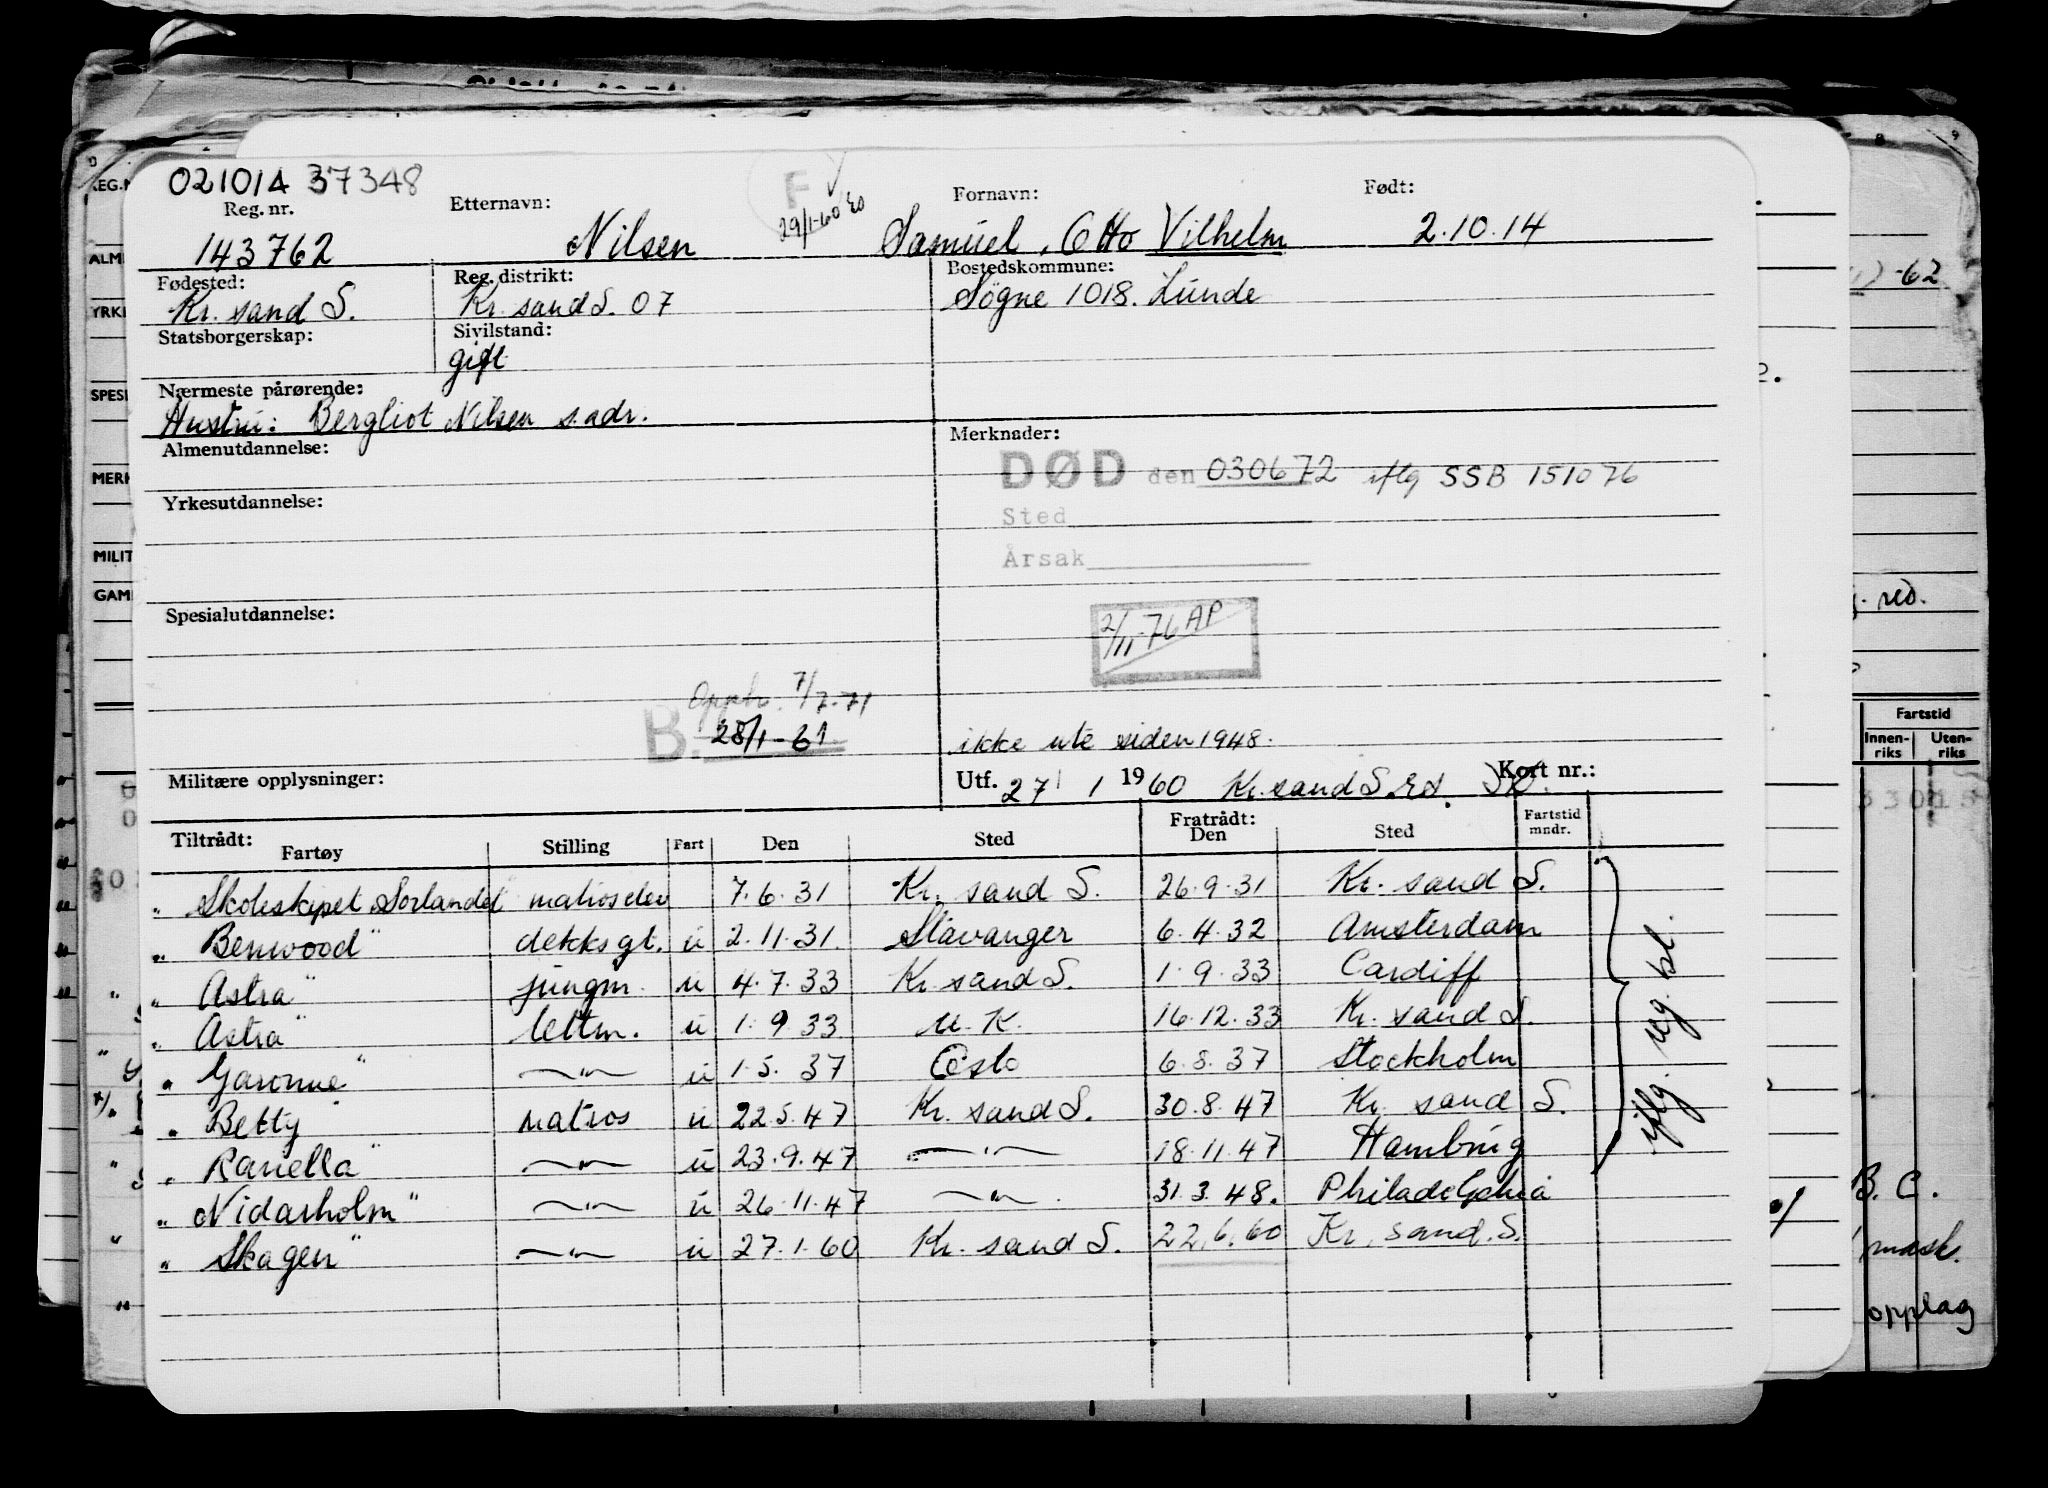 021014 37348
Reg. nr. Etternavn: F 29/1-60 Fornavn: Født:
143762 Nilsen Samuel, Otto Vilhelm 2.10.14
Fødested: Reg. distrikt: Bostedskommune:
Kr. sand S. Kr. sand S. 07 Søgne 1018. Lunde
Statsborgerskap: Sivilstand:
gift
Nærmeste pårørende:
Hustru: Bergliot Nilsen s. adr.
Almenutdannelse: Merknader:
DØD den 030672 iflg SSB 151076
Yrkesutdannelse:
Sted
Årsak
Spesialutdannelse:
2/11-76 AP
Opph. 7/7-71
B. 28/1-61
ikke ute siden 1948.
Militære opplysninger: Utf. 27/1 1960 Kr. sand S. Kort nr.:
Tiltrådt: Fratrådt: Fartstid
Fartøy Stilling Fart Den Sted Den Sted mndr.
" Skoleskipet Sørlandet" matroselev 7.6.31 Kr. sand S. 26.9.31 Kr. sand S.
" Benwood" dekksgt. u 2.11.31. Stavanger 6.4.32 Amsterdam
" Astra" jungm. u 4.7.33 Kr. sand S. 1.9.33 Cardiff
" Astra" lettm. u 1.9.33 U.K. 16.12.33 Kr. sand S.
" Garonne" —"— u 1.5.37 Oslo 6.8.37 Stockholm
" Betty" matros u 22.5.47 Kr. sand S. 30.8.47 Kr. sand S.
" Ranella" —"— u 23.9.47 —"— 18.11.47 Hamburg
" Nidarholm" —"— u 26.11.47 —"—. 31.3.48. Philadelphia
" Skagen" —"— u 27.1.60 Kr. sand S. 22.6.60 Kr. sand. S.
iflg. reg. bl.
REG.N
ALM
YRK
SPES
MERK
MILIT
GAM
-62
Fartstid
Innen-riks Uten-riks
B. C.
mask.
opplag